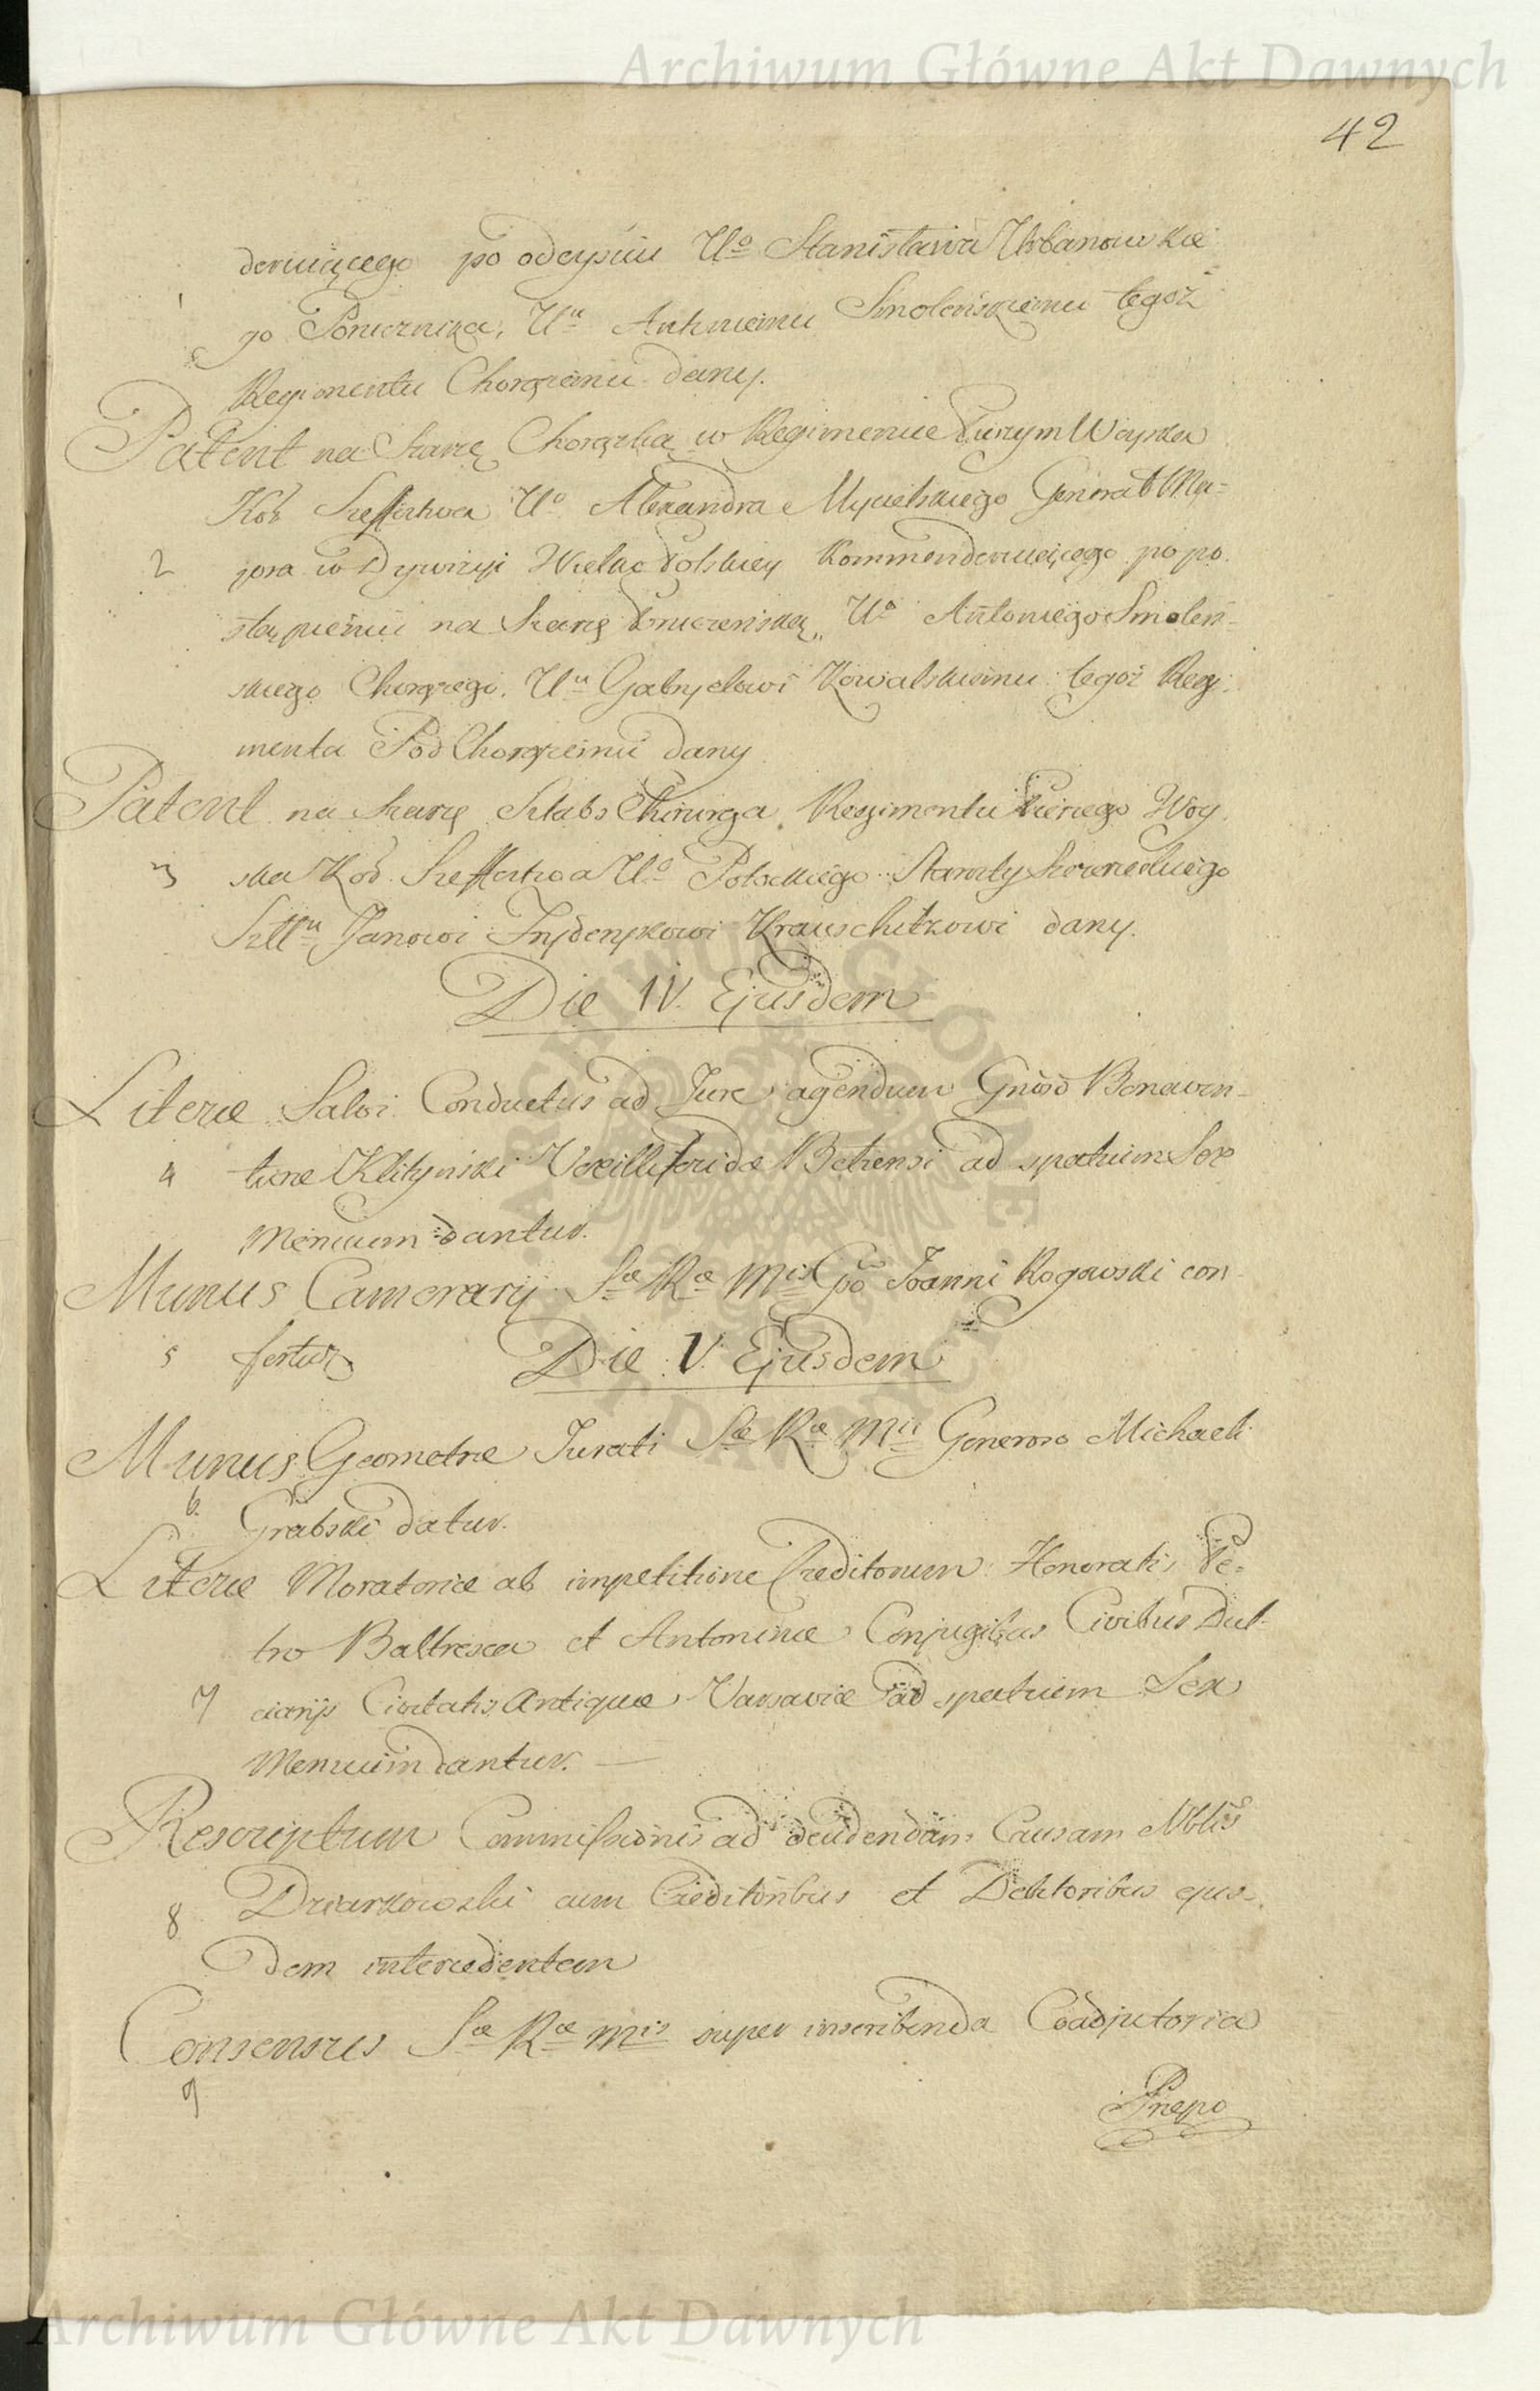 Archiwum Główne Akt Dawnych
42
deruiącego po odeyściu Uo Stanisława Urbanowskie
1 go Porucznika, Uu Antoniemu Smoleńskiemu tegoż
Regimentu Chorążemu dany.
Patent na Szarżę Chorążka w Regimencie Pieszym Woyska
Kor. Szeffostwa Uo Alexandra Mycielskiego Generał Ma=
2 jora w Dywizyi Wielko Polskiey Kommenderuiącego po po
stąpieniu na Szarżę Porucznikską Uo Antoniego Smoleń
skiego Chorążego, Uu Gabryelowi Kowalskiemu tegoż Regi
menta Pod Chorążemu dany
Patent na Szarżę Sztabs Chirurga Regimentu Pieszego Woy
3 ska Kor. Szeffostwa Uo Potockiego Starosty Szczerzeckiego
Szllu Janowi Frydrykowi Krauschitzowi dany.
Die IV. Ejusdem
Literæ Salvi Conductus ad Jure agendum Gnoso Bonaven-
4 turæ Klityński Vexilliferidæ Betzensi ad spatium Sex
Mensium dantur.
Munus Camerarij Sæ Ræ Mtis Gso Joanni Rogowski con
5 fertur
Die V. Ejusdem
Munus Geometræ Jurati Sæ Ræ Mtis Generoso Michaeli
6. Grabski datur.
Literæ Moratoriæ ab impetitione Creditorum Honoratis Pe=
tro Baltresca et Antoninæ Conjugibus Civibus Dul-
7 ciarijs Civitatis Antiquæ Varsaviæ ad spatium Sex
Mensium dantur.
Rescriptum Commissionis ad decidendam Causam Nblis
8 Dziarkowski cum Creditoribus et Debitoribus ejus-
dem intercedentem
Consensus Sæ Ræ Mtis super inscribenda Coadjutoria
9
Præpo
Archiwum Główne Akt Dawnych